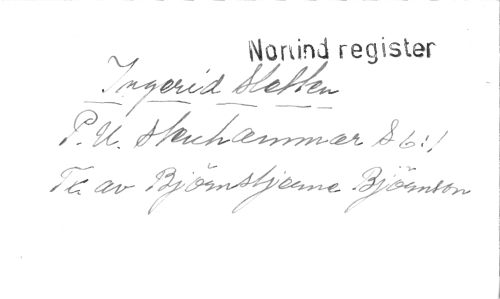 Norlind register
Ingerid Sletten
P. U. Stenhammar S 6:1
Tc. av Björnstjerne Björnson